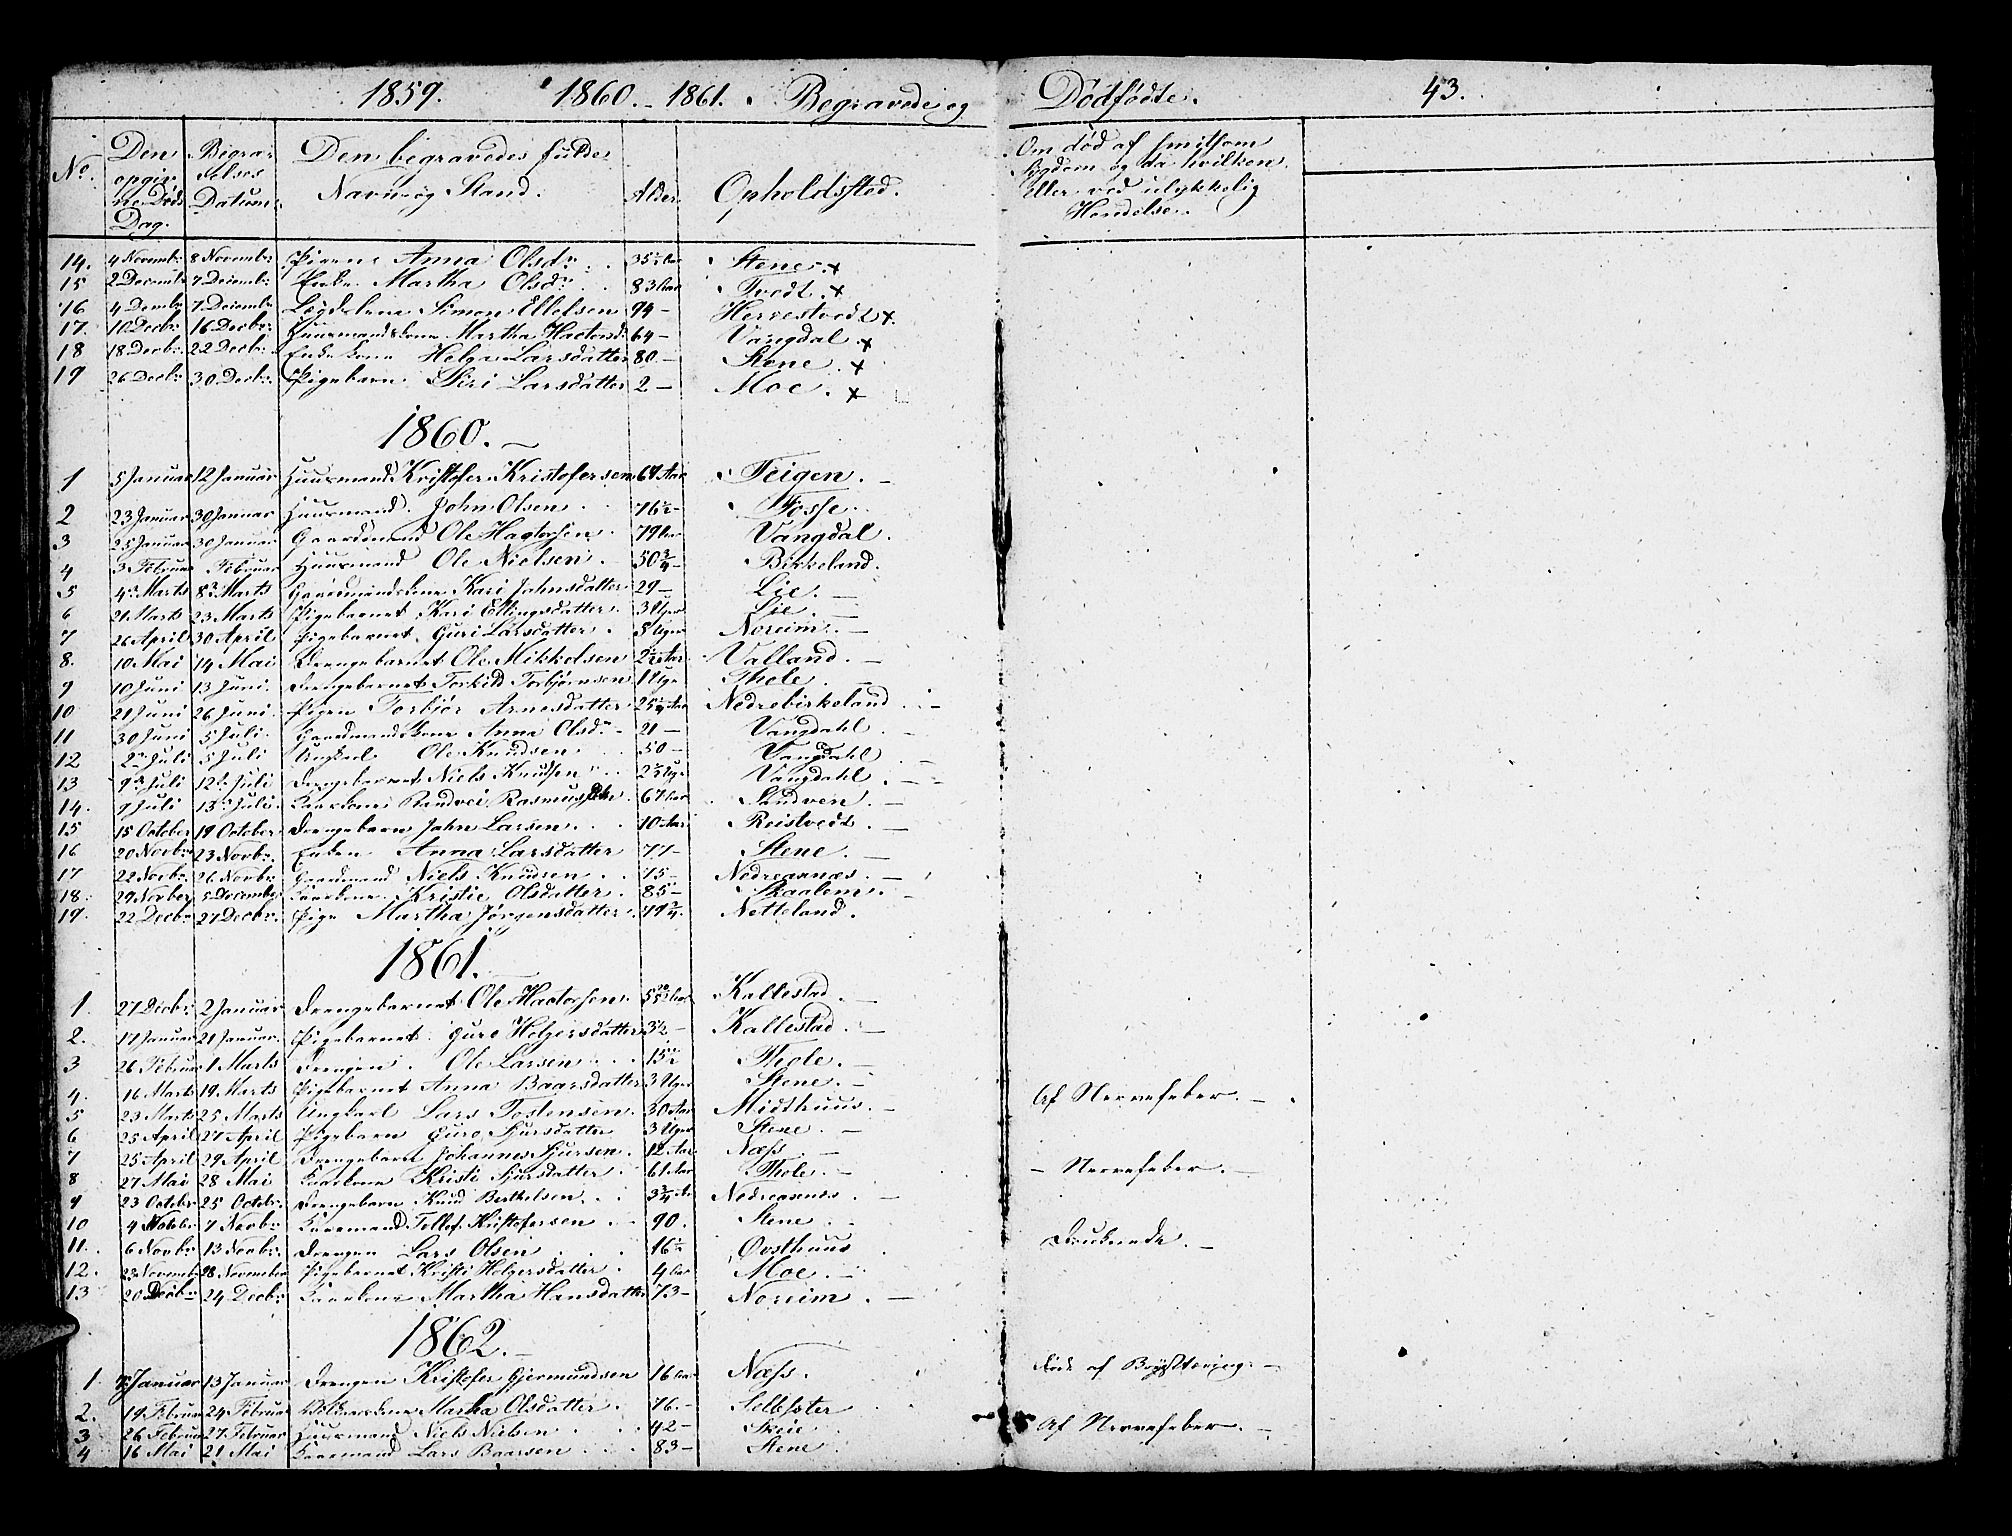 1859. 1860. - 1861. Begravede og Dødfødte. 43.
No. Den opgivne Døds Dag. Begravelses Datum. Den begravedes fulde Navn og Stand. Alder. Opholdssted. Om død af smitsom Sygdom og da hvilken eller ved ulykkelig Hendelse.
14. 4 Novembr 8 Novembr Pigen Anna Olsdr. 35 1/2 Aar Stene x
15 2 Decembr 7 Decembr Enke Martha Olsdr. 83 Aar Tvedt. x
16 4 Dembr 7 Decembr Legdslem Simon Ellefsen 94 - Herrestvedt x.
17. 10 Decbr 16 Decbr Huusmandskone Martha Hactorsd. 64 - Vangdal x
18 18 Decbr 22 Decbr Enkekone Helga Larsdatter 80 - Stene . x
19 26 Decbr 30. Decbr. Pigebarn Siri Larsdatter 2 - Moe . x
1860. -
1 5 Januar 12 Januar Huusmand Kristofer Kristofersen 64 Aar Teigen. -
2 23 Januar 30 Januar Huusmand. John Olsen 76 1/2 - Fosse.
3 25 Januar 30 Januar Gaardmand Ole Hactorsen 79 Aar Vangdal.
4 3 Februar Februar Huusmand Ole Nielsen 50 3/4 - Birkeland.
5 4 Marts 8 Marts Gaardmandskone Kari Johnsdatter 29 - Lie. -
6 21 Marts 23 Marts Pigebarnet Kari Ellingsdatter. 3 Uger Lie. -
7 26 April 30 April Pigebarnet. Guri Larsdatter . 5 Uger Noreim. -
8. 10 Mai 14 Mai Drengebarnet Ole Mikkelsen Aar Valland. -
9 10 Juni 13 Juni. Drengebarnet Torkild Torbjørnsen 1 Uge Thole. -
10 21 Juni 26 Juni. Pigen Torbjør Arnesdatter 25 1/4 Aar Nedrebirkeland . -
11 30 Juni 5 Juli. Gaardmandskone Anna Olsdr - 21 - Vangdahl -
12 2 Juli 5 Juli Ungkarl Ole Knudsen 50 - Vangdahl -
13 9 Juli 12 Juli Drengebarnet Niels Knudsen Uge Vangdahl . -
14. 9 Juli 13 Juli. Kaarkone Randvei Rasmusdtr. 67 Aar Sandven . -
15 15 October 19 October Drengebarn John Larsen. 10 Aar Reistvedt. -
16 20 Novbr 23 Novbr. Enken Anna Larsdatter 77 - Stene. -
17 22 Novbr 26 Novbr. Gaardmand Niels Knudsen . 75 - Nedreaxnæs. -
18. 29 Novber 5 December Kaarkone Kristie Olsdatter. 85 - Skaalem. -
19. 22 Decbr 27 Decbr. Pige Martha Jørgensdatter. 49 3/4. Netteland.
1861.
1. 27 Decbr. 2 Januar Drengebarnet Ole Hactorsen. Aar Kallestad. -
2. 17 Januar 21 Januar. Pigebarnet. Guro Holgersdatter 3 1/2 - Kallestad. -
3 26 Februar 1 Marts Drengen . Ole Larsen Thole. -
4. 16 Marts 19 Marts Pigebarnet Anna Baarsdatter 3 Uger Stene. -
5 23 Marts 25 Marts Ungkarl Lars Tostensen. 30 Aar Midthuus. - Af Nervefeber. -
6 25 April 27 April Pigebarn Guro Sjursdatter 3 Uger Stene. -
7 25 April 29 April Drengebarn Johannes Sjursen. 12 Aar Næss. - - Nervefeber. -
8 27 Mai 28 Mai Kaarkone Kristi Sjursdatter . 61 Aar Thole. -
9 23 Octobr 25 Octobr. Drengebarn Knud Berthelsen. 3 3/4 Ar Nedreaxnæs . -
10 4 Novbr. 7 Novbr. Kaarmand Tollef. Kristofersen . 90. Stene . -
11. 6 Novbr 13 Novbr. Drengen Lars Olsen . 16 1/2 Ovsthuus . Druknede. -
12. 23 Novembr 28 November Pigebarnet Kristi Holgersdatter . 4 Aar Moe. -
13 20 Decbr 24 Decbr. Kaarkone Martha Hansdatter 73 - Noreim . -
1862. -
1. Januar 13 Januar Drengen Kristofer Gjermundsen 16 Aar Næss. Døde af Brysttæring. -
2. 19 Februar 24 Februar Martha Olsdatter . 76. - Selsæter
3 26 Februar 27. Februar Huusmand Niels Nielsen 42 - Skeie . Af Nervefeber. -
4 16 Mai 21 Mai Kaarmand Lars Baarsen 83 - Stene .